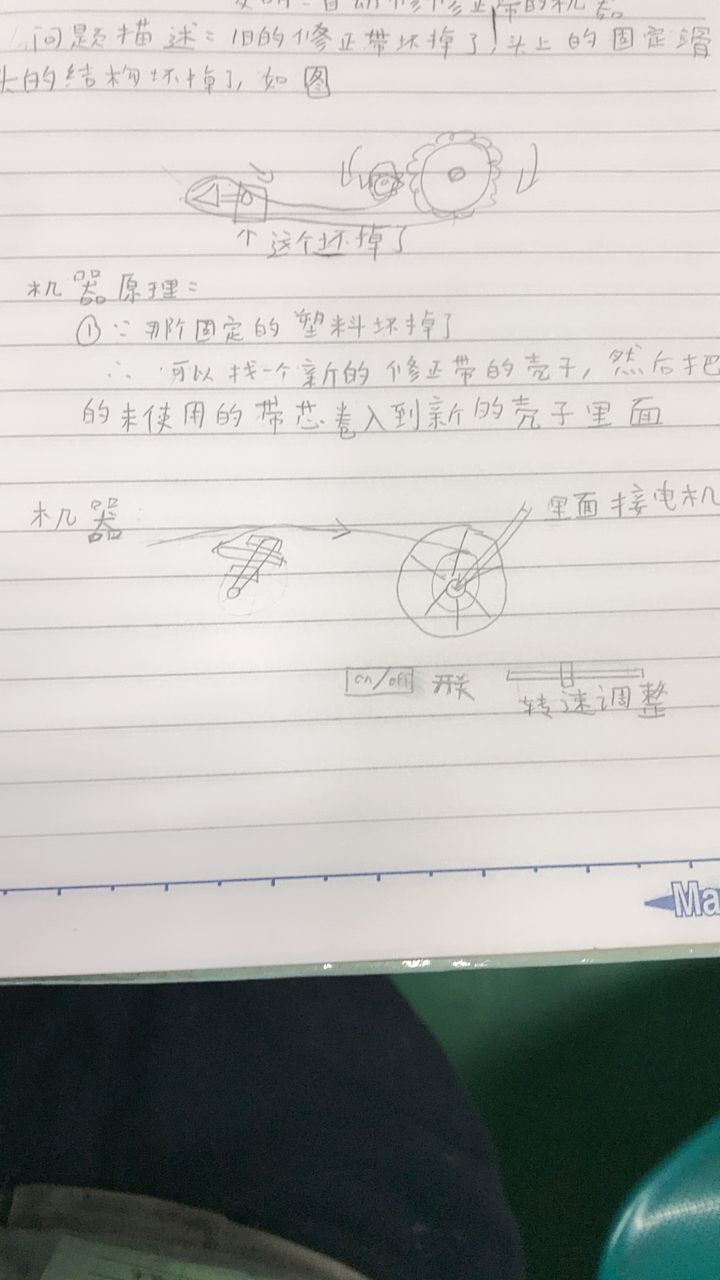 发明:自动修修正带的机器
问题描述:旧的修正带坏掉了,头上的固定滑
头的结构坏掉了,如图
↑这个坏掉了
机器原理:
①∵那个固定的塑料坏掉了
∴可以找一个新的修正带的壳子,然后把
的未使用的带芯卷入到新的壳子里面
机器
里面接电机
on/off 开关
转速调整
Ma